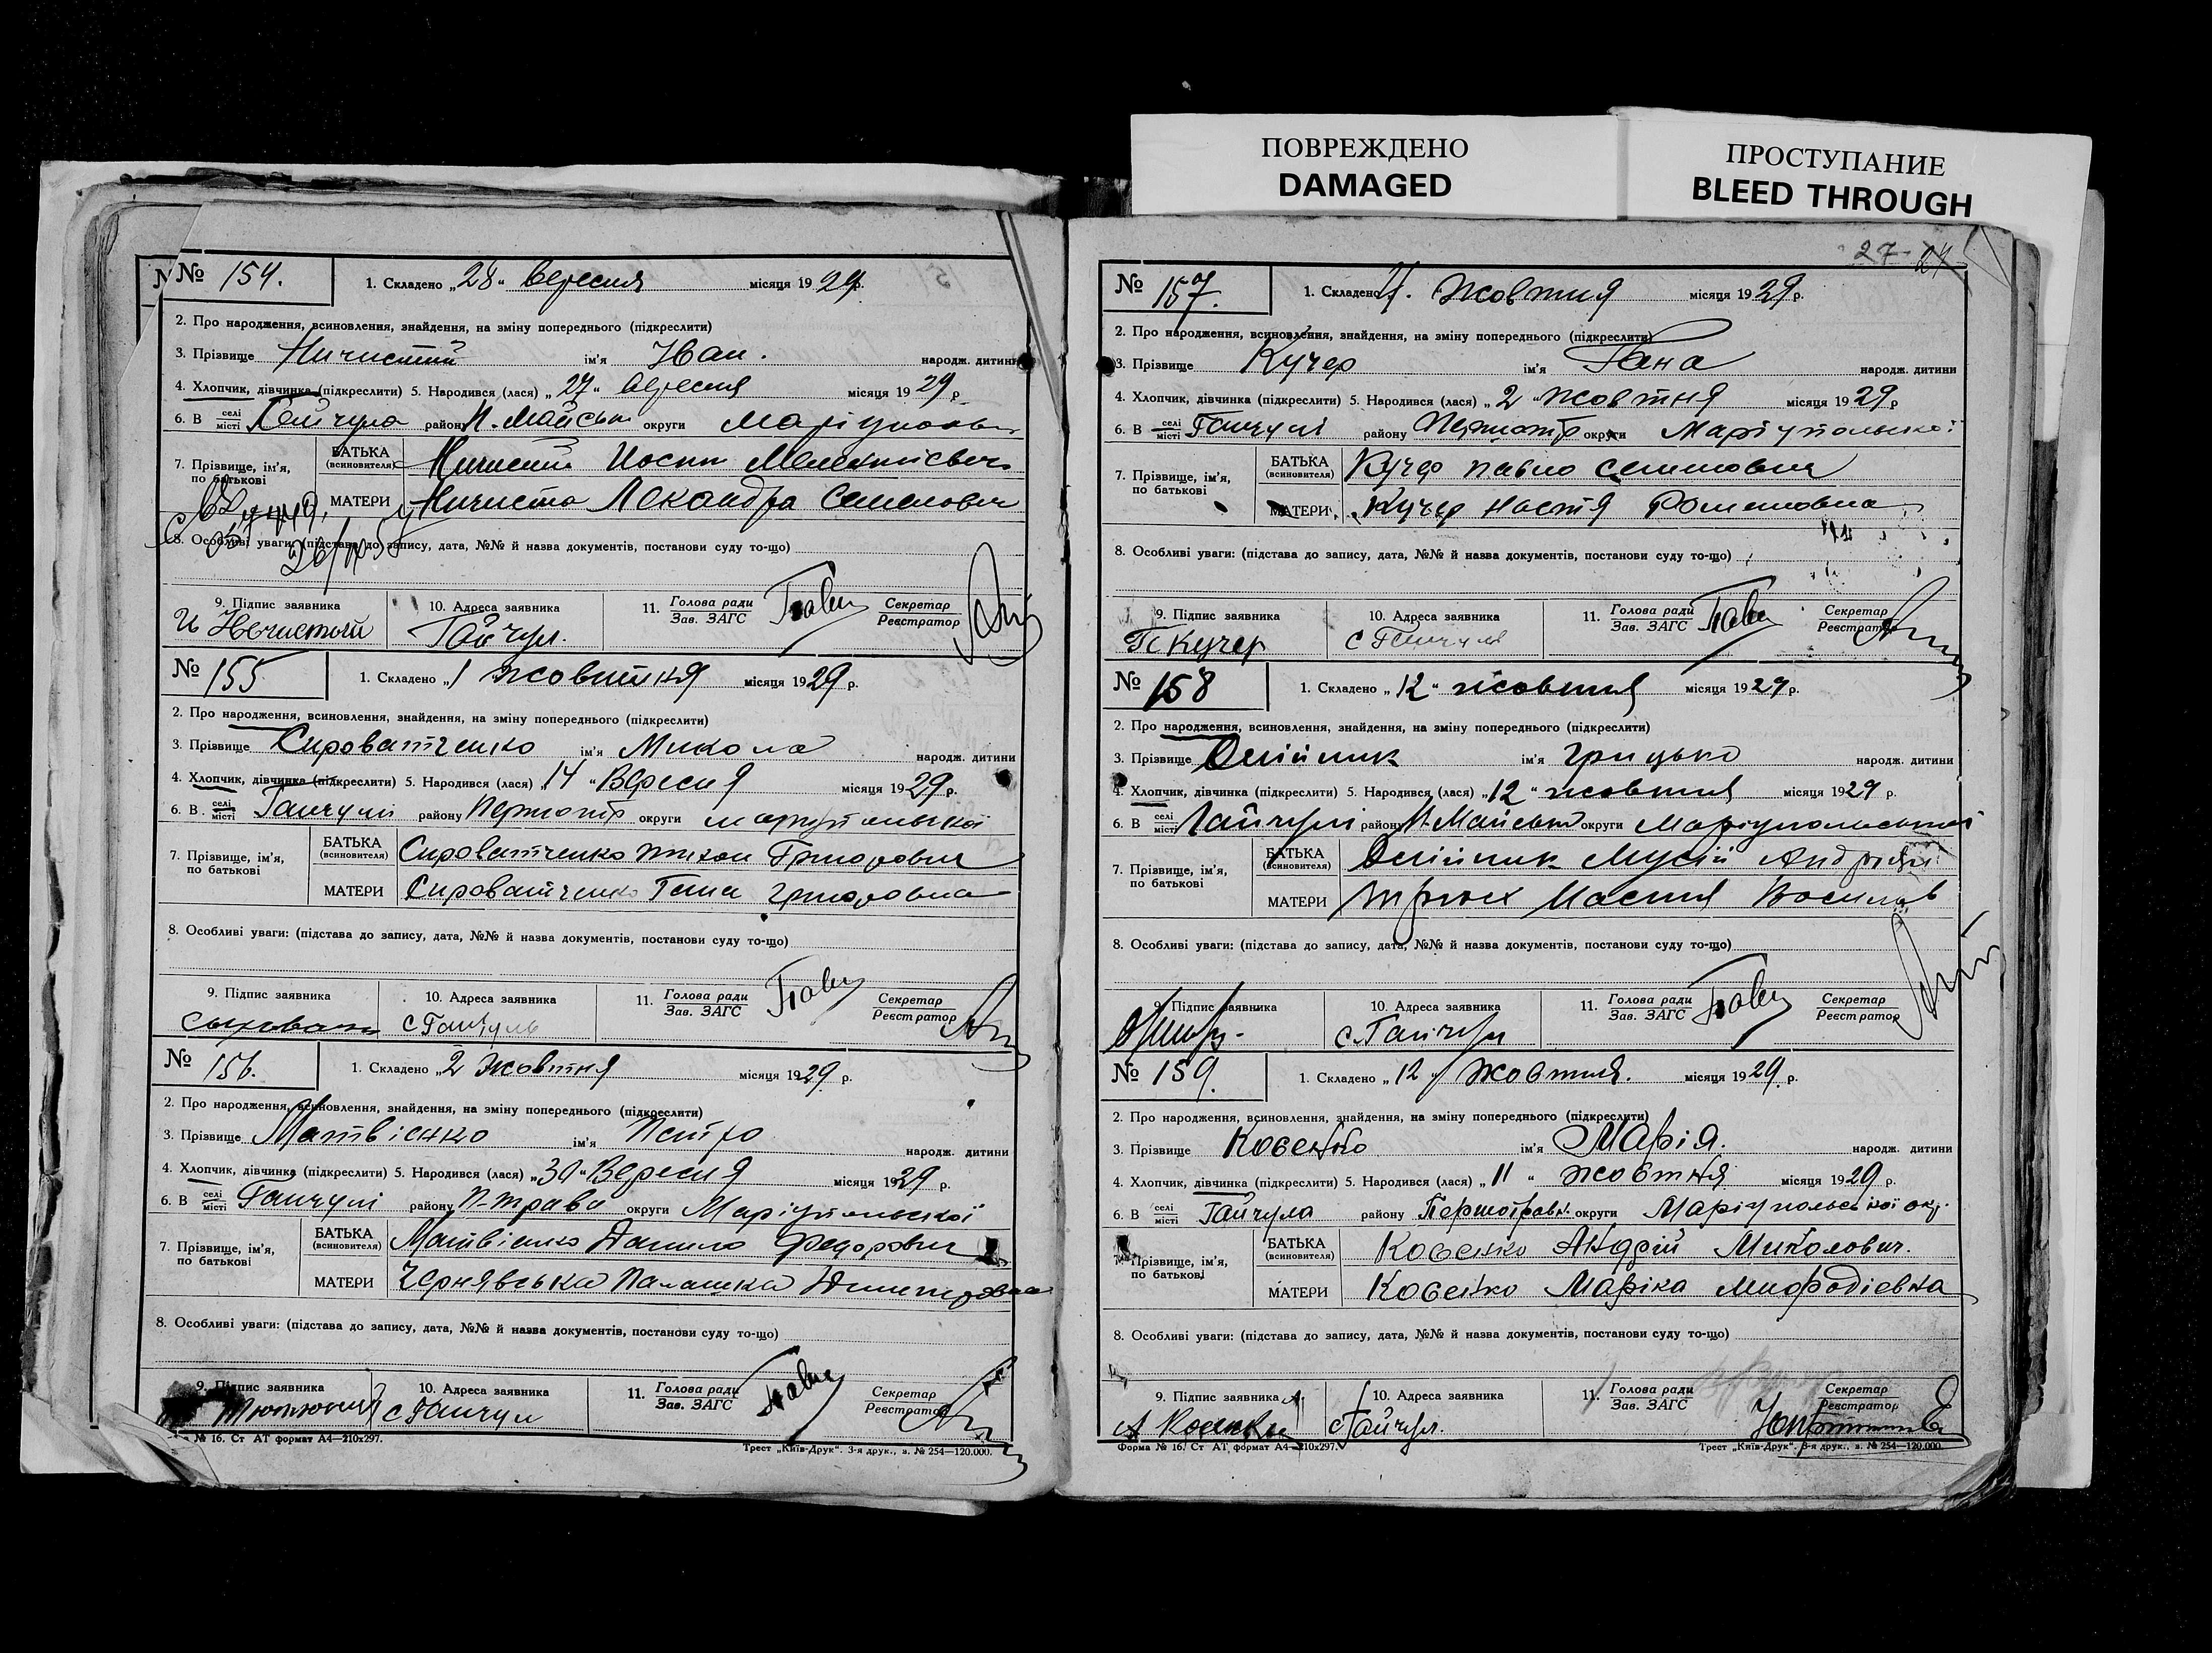 ПОВРЕЖДЕНО
DAMAGED
ПРОСТУПАНИЕ
BLEED THROUGH
№ 154. 1. Складено „28" вересня місяця 1929р.
2. Про народження, всиновлення, знайдення, на зміну попереднього (підкреслити)
3. Прізвище Ничистий ім'я Іван. народж. дитини
4. Хлопчик, дівчинка (підкреслити) 5. Народився (лася) „27" вересня місяця 1929 р
6. В селі місті Гайчула району П. Майськ округи
7. Прізвище, ім'я, по батькові
БАТЬКА (всиновителя) Ничистий Иосип
МАТЕРИ Ничиста Лександра Семенович
8. Особливі уваги: (підстава до запису, дата, №№ й назва документів, постанови суду то-що)
9. Підпис заявника И Нечистый 10. Адреса заявника Гайчул. 11. Голова ради Зав. ЗАГС Секретар Реєстратор
№ 155 1. Складено „1 жовтня місяця 1929 р.
2. Про народження, всиновлення, знайдення, на зміну попереднього (підкреслити)
3. Прізвище Сироватченко ім'я Микола народж. дитини
4. Хлопчик, дівчинка (підкреслити) 5. Народився (лася) „14" Вересня місяця 1929 р.
6. В селі місті Гайчулі району округи маріупольської
7. Прізвище, ім'я, по батькові
БАТЬКА (всиновителя) Сироватченко Тихон Григорович
МАТЕРИ Сироватченко Григоровна
8. Особливі уваги: (підстава до запису, дата, №№ й назва документів, постанови суду то-що)
9. Підпис заявника 10. Адреса заявника с Гайчуль 11. Голова ради Зав. ЗАГС Секретар Реєстратор
№ 156. 1. Складено „2 Жовтня місяця 1929 р.
2. Про народження, всиновлення, знайдення, на зміну попереднього (підкреслити)
3. Прізвище Матвієнко ім'я Петро народж. дитини
4. Хлопчик, дівчинка (підкреслити) 5. Народився (лася) „30" Вересня місяця 1929 р.
6. В селі місті Гайчулі району П-трав округи Маріупольської
7. Прізвище, ім'я, по батькові
БАТЬКА (всиновителя) Матвієнко Данило Федорович
МАТЕРИ Чернявська Палашка
8. Особливі уваги: (підстава до запису, дата, №№ й назва документів, постанови суду то-що)
9. Підпис заявника 10. Адреса заявника с Гайчул 11. Голова ради Зав. ЗАГС Секретар Реєстратор
№ 16. Ст АТ формат А4—210х297. Трест „Київ-Друк". 3-я друк., з. № 254—120.000.
27
№ 157. 1. Складено Жовтня місяця 1929 р.
2. Про народження, всиновлення, знайдення, на зміну попереднього (підкреслити)
3. Прізвище Кучер ім'я Гана народж. дитини
4. Хлопчик, дівчинка (підкреслити) 5. Народився (лася) „2" Жовтня місяця 1929 р
6. В селі місті Гайчулі району округи Маріупольської
7. Прізвище, ім'я, по батькові
БАТЬКА (всиновителя) Кучер Павло Семенович
МАТЕРИ Кучер Настя
8. Особливі уваги: (підстава до запису, дата, №№ й назва документів, постанови суду то-що)
9. Підпис заявника П Кучер 10. Адреса заявника с Гайчуль 11. Голова ради Зав. ЗАГС Секретар Реєстратор
№ 158 1. Складено „12" жовтня місяця 1929 р.
2. Про народження, всиновлення, знайдення, на зміну попереднього (підкреслити)
3. Прізвище Олійник ім'я Грицько народж. дитини
4. Хлопчик, дівчинка (підкреслити) 5. Народився (лася) „12" жовтня місяця 1929 р.
6. В селі місті Гайчулі району П. Майськ округи Маріупольської
7. Прізвище, ім'я, по батькові
БАТЬКА (всиновителя) Олійник Мусій
МАТЕРИ Настя
8. Особливі уваги: (підстава до запису, дата, №№ й назва документів, постанови суду то-що)
9. Підпис заявника 10. Адреса заявника с. Гайчул 11. Голова ради Зав. ЗАГС Секретар Реєстратор
№ 159. 1. Складено „12" Жовтня. місяця 1929 р.
2. Про народження, всиновлення, знайдення, на зміну попереднього (підкреслити)
3. Прізвище Косенко ім'я Марія. народж. дитини
4. Хлопчик, дівчинка (підкреслити) 5. Народився (лася) „11" Жовтня місяця 1929 р.
6. В селі місті Гайчула району Першотравн. округи Маріупольської окр.
7. Прізвище, ім'я, по батькові
БАТЬКА (всиновителя) Косенко Андрій Миколович.
МАТЕРИ Косенко Маріка Мифодіевна
8. Особливі уваги: (підстава до запису, дата, №№ й назва документів, постанови суду то-що)
9. Підпис заявника 10. Адреса заявника с Гайчул. 11. Голова ради Зав. ЗАГС Секретар Реєстратор
Форма № 16. Ст АТ формат А4—210х297. Трест „Київ-Друк". 3-я друк., з. № 254—120.000.